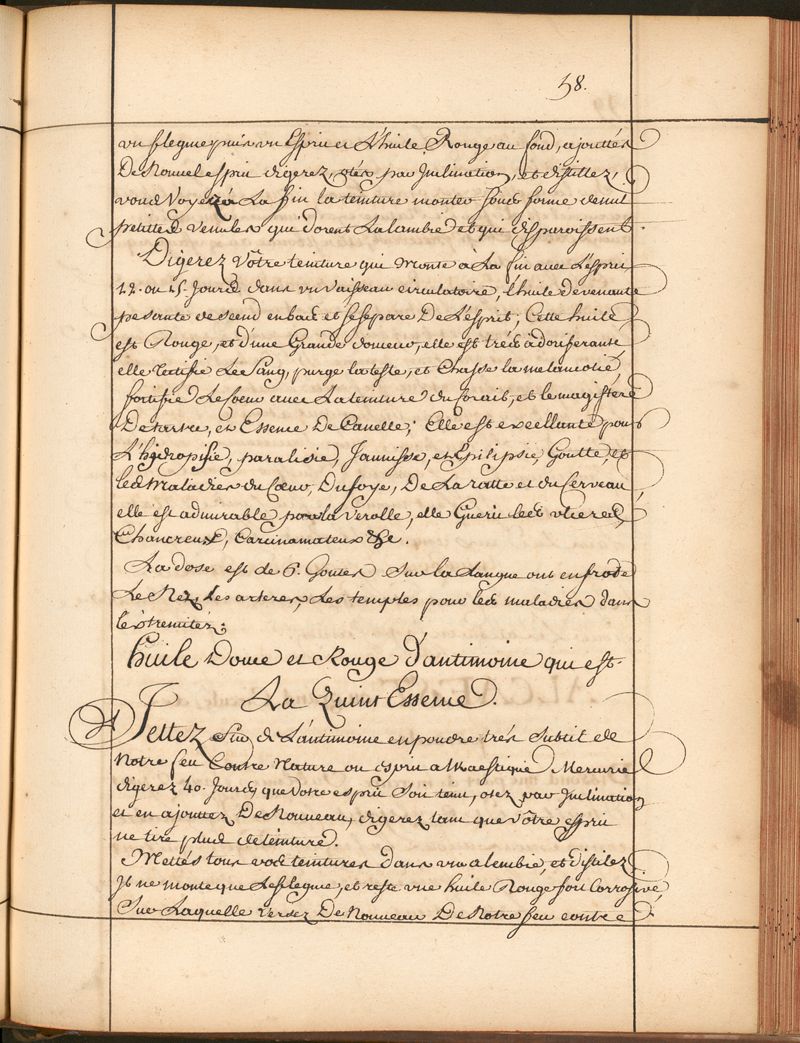 58.
un flegme puis un Esprit et L'huile Rouge au fond, ajouttés
De Nouvel esprit digerez, otés par Inclination, et distillez,
vous Voyerés La fin la teinture monter sous forme de mil
petittes venules qui dorent Lalambic et qui disparoissent.
Digerez vôtre teinture qui monte à La fin avec L'esprit
12. ou 15. Jours dans un Vaisseau circulatoire, l'huile devenante
pesante descend en bas et se separe De L'esprit, Cette huile
est Rouge, et d'une Grande douceur, elle est tres adoriferante,
elle Ratifie Le Sang, purge la teste, et Chasse la melancolie
fortifie Le Coeur avec La teinture du Corail, et le magistere
De tartre, et Essence De Canelle; Elle est excellante pour
L'hydropisie, paralisie, Jaunisse, et Epilipsie, Goutte, et
les Maladies du Coeur, Du foye, De La ratte et du Cerveau
elle est admirable pour la verolle, elle Guerit les ulceres,
Chancreux, Carcinamateux &c.
La dose est de 6. Goutes Sur la Langue ont en frode
Le Nez, Les arteres, Les temples pour les maladies dans
les tremitez;
huile Douce et Rouge d'antimoine qui est
La Quint Essence.
Jettez Sur de L'antimoine en poudre trés subtil de
Notre feu Contre Nature ou esprit Mercurie
digerez 40. Jours que votre esprit Soit teint, otez par Inclination
et en ajouttez De Nouveau, digerez tant que vôtre esprit
ne tire plus de teinture.
Mettés tous vos teintures Dans un alembic, et distilez
Il ne monte que Le flegme, et reste une huile Rouge fort Corrosive
Sur Laquelle versez De Nouveau De Notre feu contre